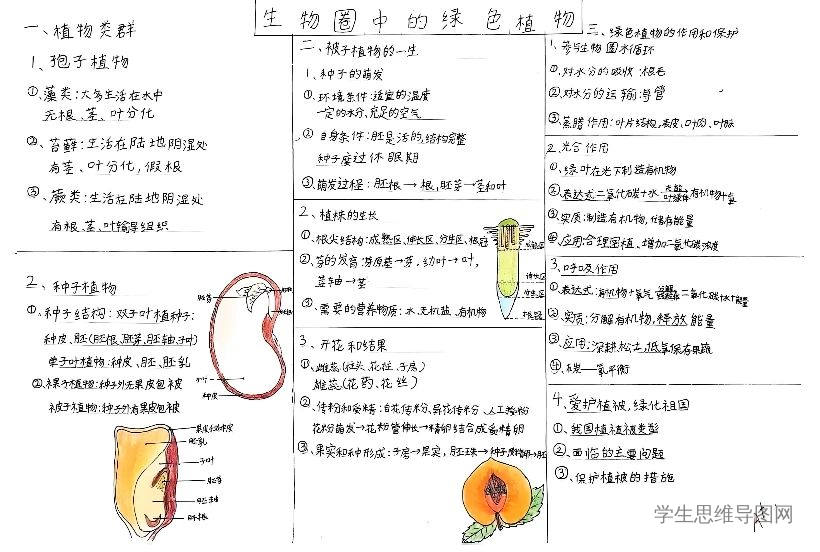 生物圈中的绿色植物
一、植物类群
1、孢子植物
①、藻类:大多生活在水中
无根、茎、叶分化
②、苔藓:生活在陆地阴湿处
有茎、叶分化,假根
③、蕨类:生活在陆地阴湿处
有根、茎、叶输导组织
2、种子植物
①、种子结构:双子叶植种子:
种皮、胚(胚根、胚芽、胚轴、子叶)
单子叶植物:种皮、胚、胚乳
②裸子植物:种子外无果皮包被
被子植物:种子外有果皮包被
胚芽
胚轴
胚根
子叶
种皮
果皮和种皮
胚乳
子叶
胚芽
胚轴
胚根
二、被子植物的一生
1、种子的萌发
①、环境条件:适宜的温度
一定的水分、充足的空气
②自身条件:胚是活的,结构完整
种子度过休眠期
③萌发过程:胚根→根,胚芽→茎和叶
2、植株的生长
①、根尖结构:成熟区、伸长区、分生区、根冠
②、芽的发育:芽原基→芽,幼叶→叶,
芽轴→茎
③、需要的营养物质:水、无机盐、有机物
成熟区
伸长区
分生区
根冠
3、开花和结果
①、雌蕊(柱头、花柱、子房)
雄蕊(花药、花丝)
②、传粉和受精:自花传粉、异花传粉、人工授粉
花粉萌发→花粉管伸长→精卵结合成受精卵
③、果实和种形成:子房→果实,胚珠→种子
三、绿色植物的作用和保护
1、参与生物圈水循环
①、对水分的吸收:根毛
②对水分的运输:导管
③蒸腾作用:叶片结构,表皮、叶肉、叶脉
2、光合作用
①、绿叶在光下制造有机物
②、表达式二氧化碳+水 光能 叶绿体 有机物+氧
③、实质:制造有机物,储存能量
④、应用:合理密植、增加二氧化碳浓度
3、呼吸作用
①、表达式:有机物+氧气→二氧化碳+水+能量
②、实质:分解有机物,释放能量
③、应用:深耕松土,低氧保存果蔬
④、碳—氧平衡
4、爱护植被,绿化祖国
①、我国植被类型
②、面临的主要问题
③、保护植被的措施
学生思维导图网